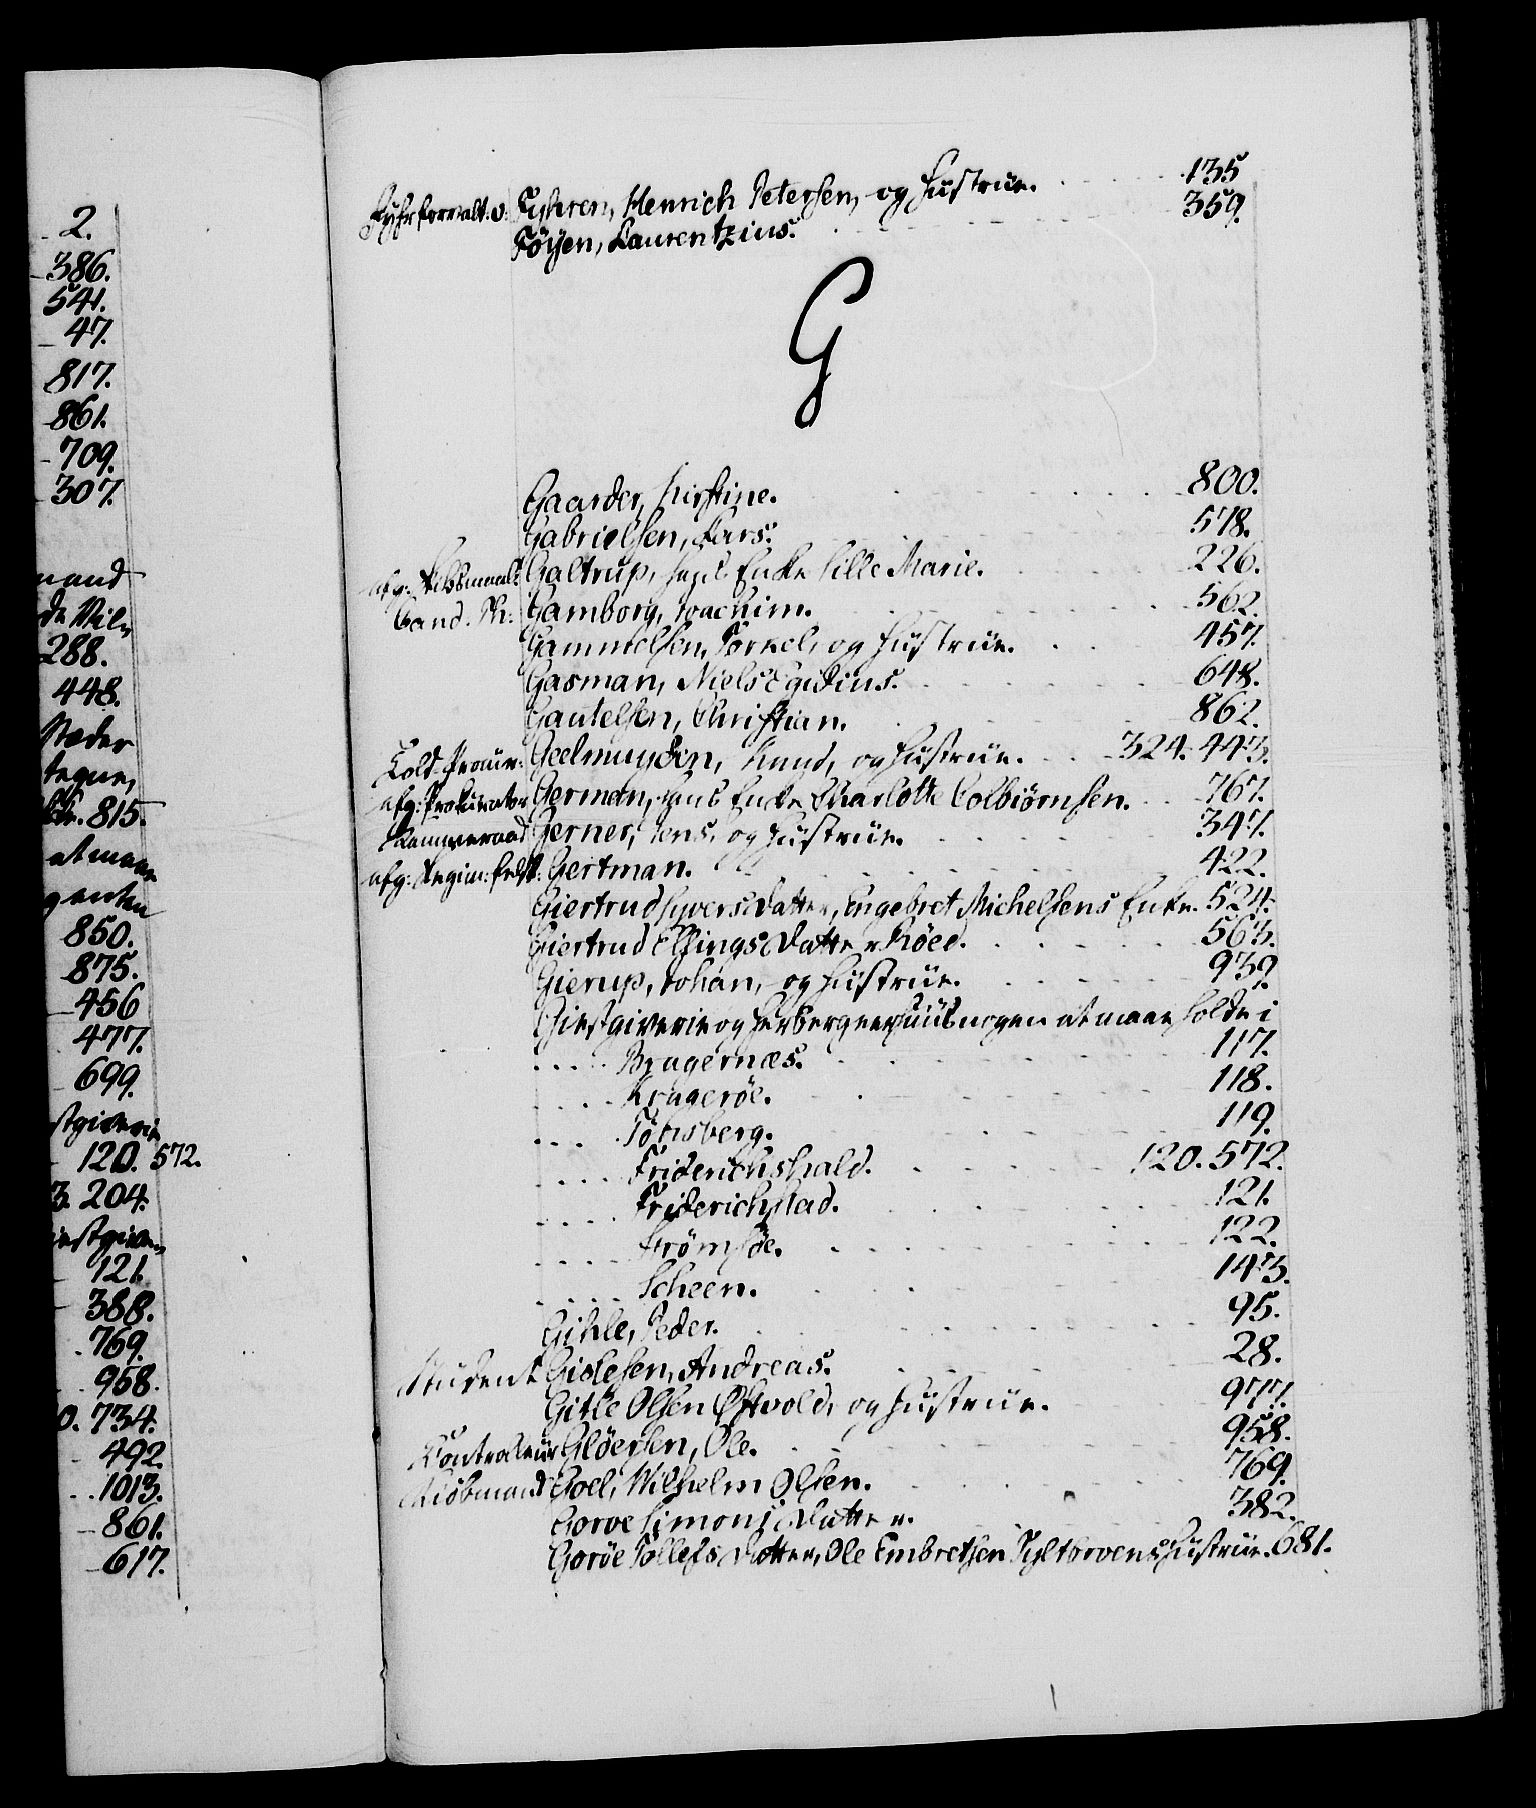 2.
386.
541.
47.
817.
861.
709.
307.
288.
448.
815.
850.
875.
456
477.
699.
120. 572.
204.
121.
388.
769.
958.
734.
492.
1013.
861.
617.
Fyhrforvalt: v: Fyhren, Henrich Petersen, og Hustrue. 135
Föyen, Laurentzius. 359.
G
Gaarder, Kirstine. 800.
Gabrielsen, Lars. 578.
afg: Galtrup, Enke Sille Marie. 226.
Cand. Th: Gamborg, Joachim. 562.
Gammelsen, Torkel, og Hustrue. 457.
Gasman, Niels Egidius. 648.
Gautelsen, Christian. 862.
Told-Procur: Geelmuyden, Knud, og Hustrue. 324. 443.
afg: Prokurator German, Enke Charlotte Colbiörnsen. 767.
Kammeraad Gerner, Jens, og Hustrue. 347.
afg: Regim: Gertman. 422.
Giertrud Syvers Datter, Engebret Michelsens Enke. 524.
Giertrud Ellings Datter Röed. 563.
Gierup, Johan, og Hustrue. 939.
Giestgiverie og nogen at maae holde i
Bragernæs. 117.
Kragerøe. 118.
Tönsberg. 119.
Friderichshald. 120. 572.
Friderichstad. 121.
Strömsöe. 122.
Scheen. 143.
Gihle, Peder. 95.
Student Gislesen, Andreas. 28.
Gitle Olsen Østvold, og Hustrue. 977.
Kontroleur Glöersen, Ole. 958.
Kiöbmand Goel, Wilhelm Olsen. 769.
Gorve Simons Datter. 382.
Goröe Tollefs Datter, Ole Embretsen Hustrue. 681.